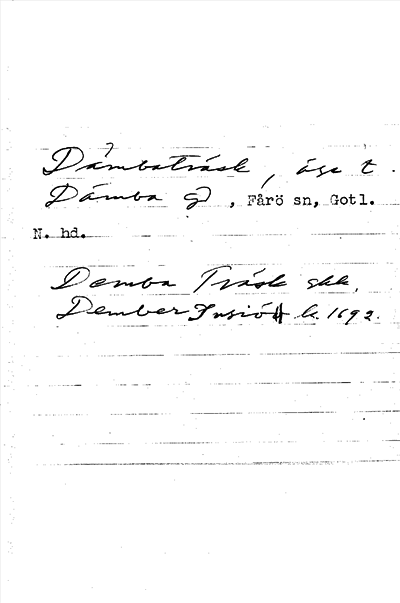 Dämbaträsk, äga t.
Dämba gd, Fårö sn, Gotl.
N. hd.
Demba Träsk ekk.
Dember Insiö k. 1692.